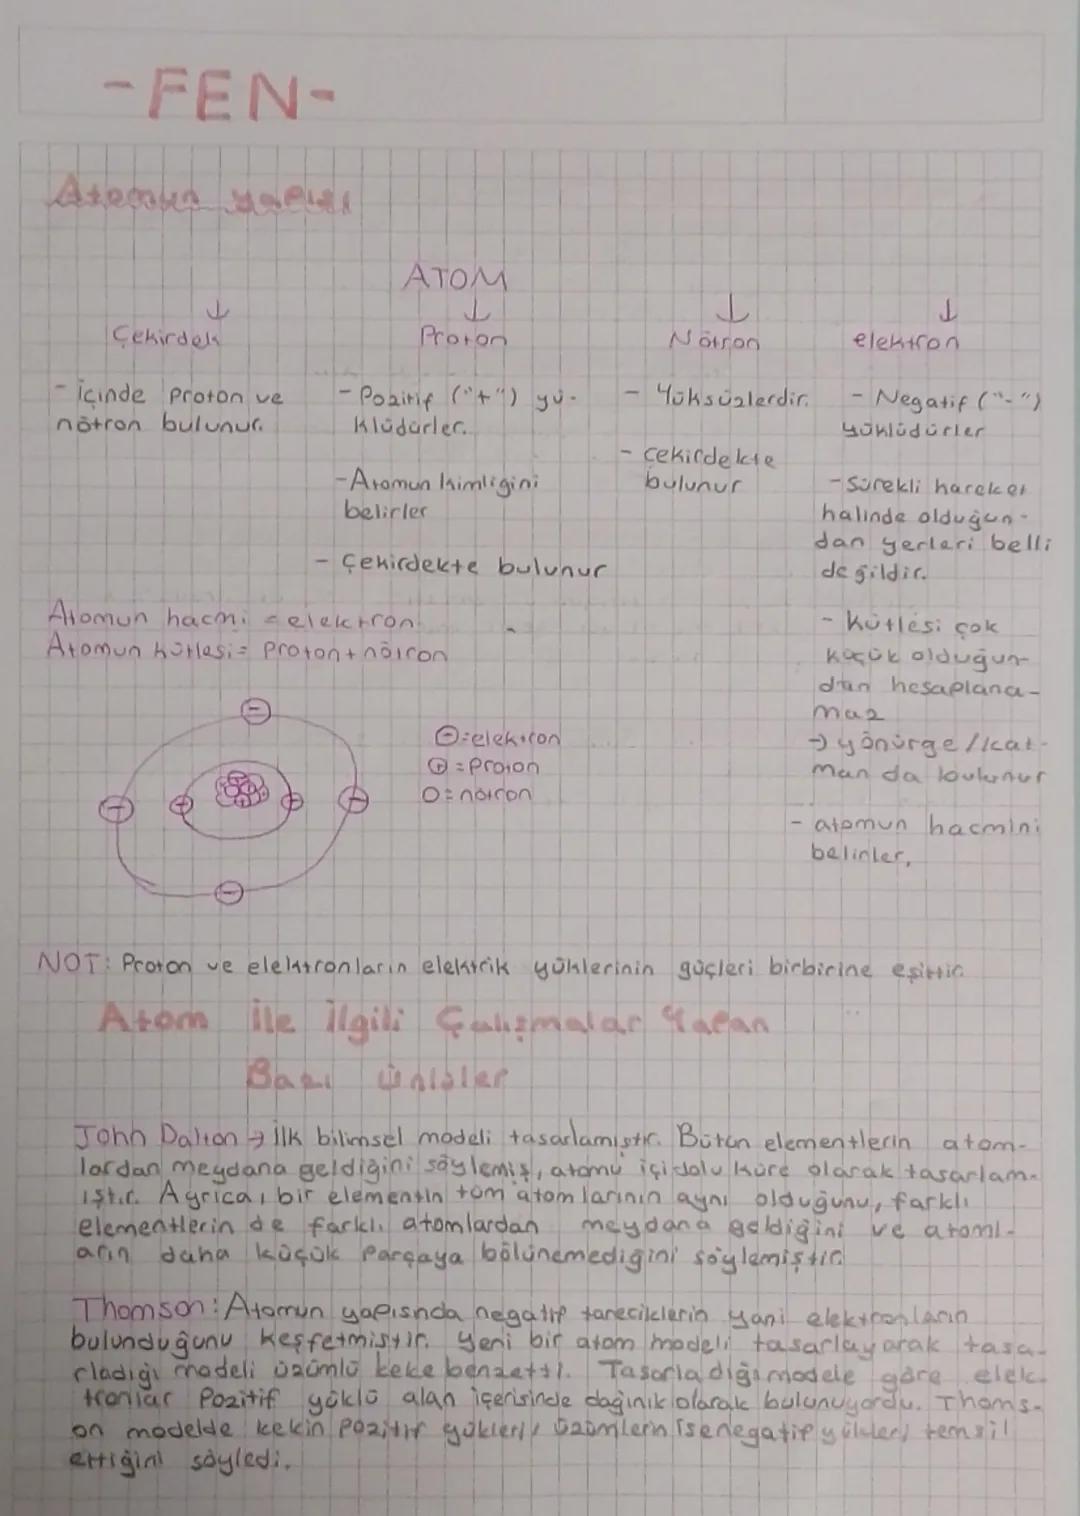 -FEN-
Atomun yapısı
ATOM
↓ ↓ ↓ ↓
Çekirdek Proton Nötron elektron
- içinde proton ve
nötron bulunur.
- Pozitif ("+") yü-
klüdürler.
-Atomun kimligini
belirler
- Çekirdekte bulunur
- Yüksüzlerdir.
- çekirdekte
bulunur
- Negatif ("-")
yüklüdürler
-Sürekli hareket
halinde olduğun-
dan yerleri belli
değildir.
- Kütlesi çok
küçük olduğun-
dan hesaplana-
maz
→ yönürge/kat-
man da bulunur
- atomun hacmini
belirler.
Atomun hacmi = elektron
Atomun kütlesi = Proton+nötron
⊖=elektron
⊕=Proton
O=nötron
NOT: Proton ve elektronların elektrik yüklerinin güçleri birbirine eşittir.
Atom ile ilgili Çalışmalar Yapan
Bazı ünlüler
John Dalton → İlk bilimsel modeli tasarlamıştır. Bütün elementlerin atom-
lardan meydana geldiğini söylemiş, atomu içi dolu küre olarak tasarlam-
ıştır. Ayrıca, bir elementin tüm atomlarının aynı olduğunu, farklı
elementlerin de farklı atomlardan meydana geldiğini ve atoml-
arın daha küçük parçaya bölünemediğini söylemiştir.
Thomson: Atomun yapısında negatif taneciklerin yani elektronların
bulunduğunu keşfetmiştir. Yeni bir atom modeli tasarlayarak tasa-
rladığı modeli üzümlü keke benzetti. Tasarladığı modele göre elek-
tronlar Pozitif yüklü alan içerisinde dağınık olarak bulunuyordu. Thoms-
on modelde kekin pozitif yükleri, üzümlerin ise negatif yükleri temsil
ettiğini söyledi.